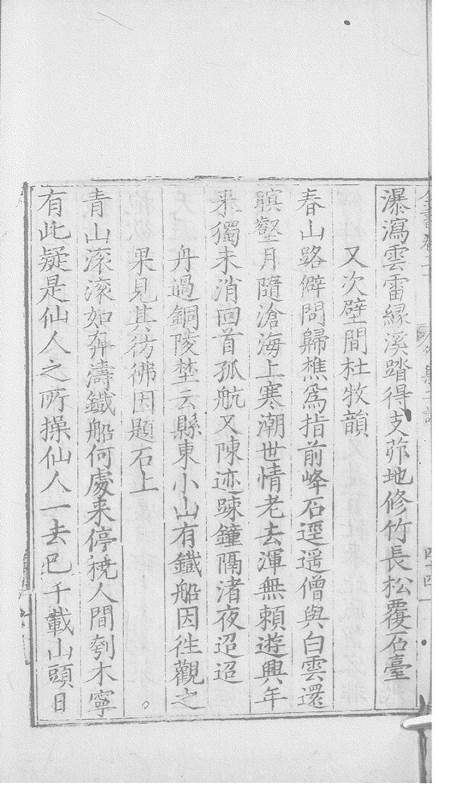 瀑瀉雲雷緣溪踏得支茆地修竹長松覆石臺
又次壁間杜牧韻
春山路僻問歸樵為指前峰石逕遥僧與白雲還
暝壑月隨滄海上寒潮世情老去渾無頼遊興年
来獨未消回首孤航又陳迹踈鐘隔渚夜迢迢
舟過銅陵埜云縣東小山有鐵船因徃觀之
果見其彷彿因題石上
青山滚滚如奔濤鐵船何處来停橈人間刳木寧
有此疑是仙人之所操仙人一去已千載山頭日